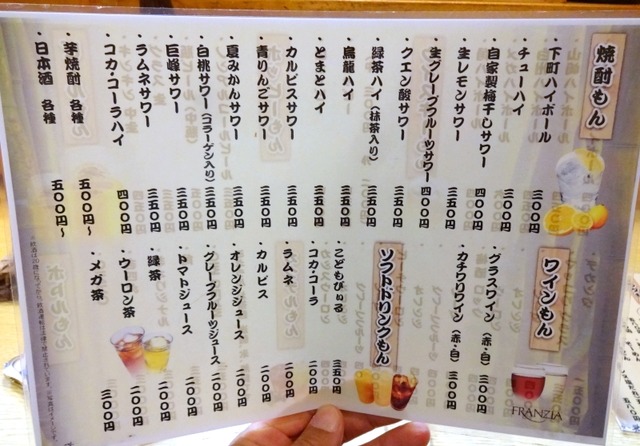 焼酎もん
・下町ハイボール 三〇〇円
・チューハイ 三〇〇円
・自家製梅干しサワー 四〇〇円
・生レモンサワー 三五〇円
・生グレープフルーツサワー 四〇〇円
・クエン酸サワー 三五〇円
・緑茶ハイ(抹茶入り) 三五〇円
・烏龍ハイ 三五〇円
・とまとハイ 三五〇円
・カルピスサワー 三五〇円
・青りんごサワー 三五〇円
・夏みかんサワー 三五〇円
・白桃サワー(コラーゲン入り) 三五〇円
・巨峰サワー 三五〇円
・ラムネサワー 三五〇円
・コカ・コーラハイ 四〇〇円
・芋焼酎 各種 五〇〇円〜
・日本酒 各種 五〇〇円〜
ワインもん
・グラスワイン(赤・白) 三〇〇円
・カチワリワイン(赤・白) 三〇〇円
FRANZIA
ソフトドリンクもん
・こどもびぃる 三五〇円
・コカ・コーラ 二〇〇円
・ラムネ 二〇〇円
・カルピス 二〇〇円
・オレンジジュース 二〇〇円
・グレープフルーツジュース 二〇〇円
・トマトジュース 二〇〇円
・緑茶 二〇〇円
・ウーロン茶 二〇〇円
・メガ茶 三〇〇円